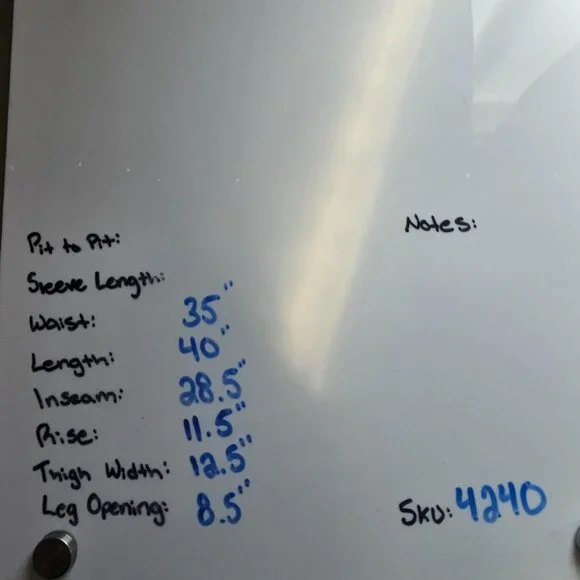 Notes:
Pit to Pit:
Sleeve Length:
Waist: 35"
Length: 40"
Inseam: 28.5"
Rise: 11.5"
Thigh Width: 12.5"
Leg Opening: 8.5"
Sku: 4240